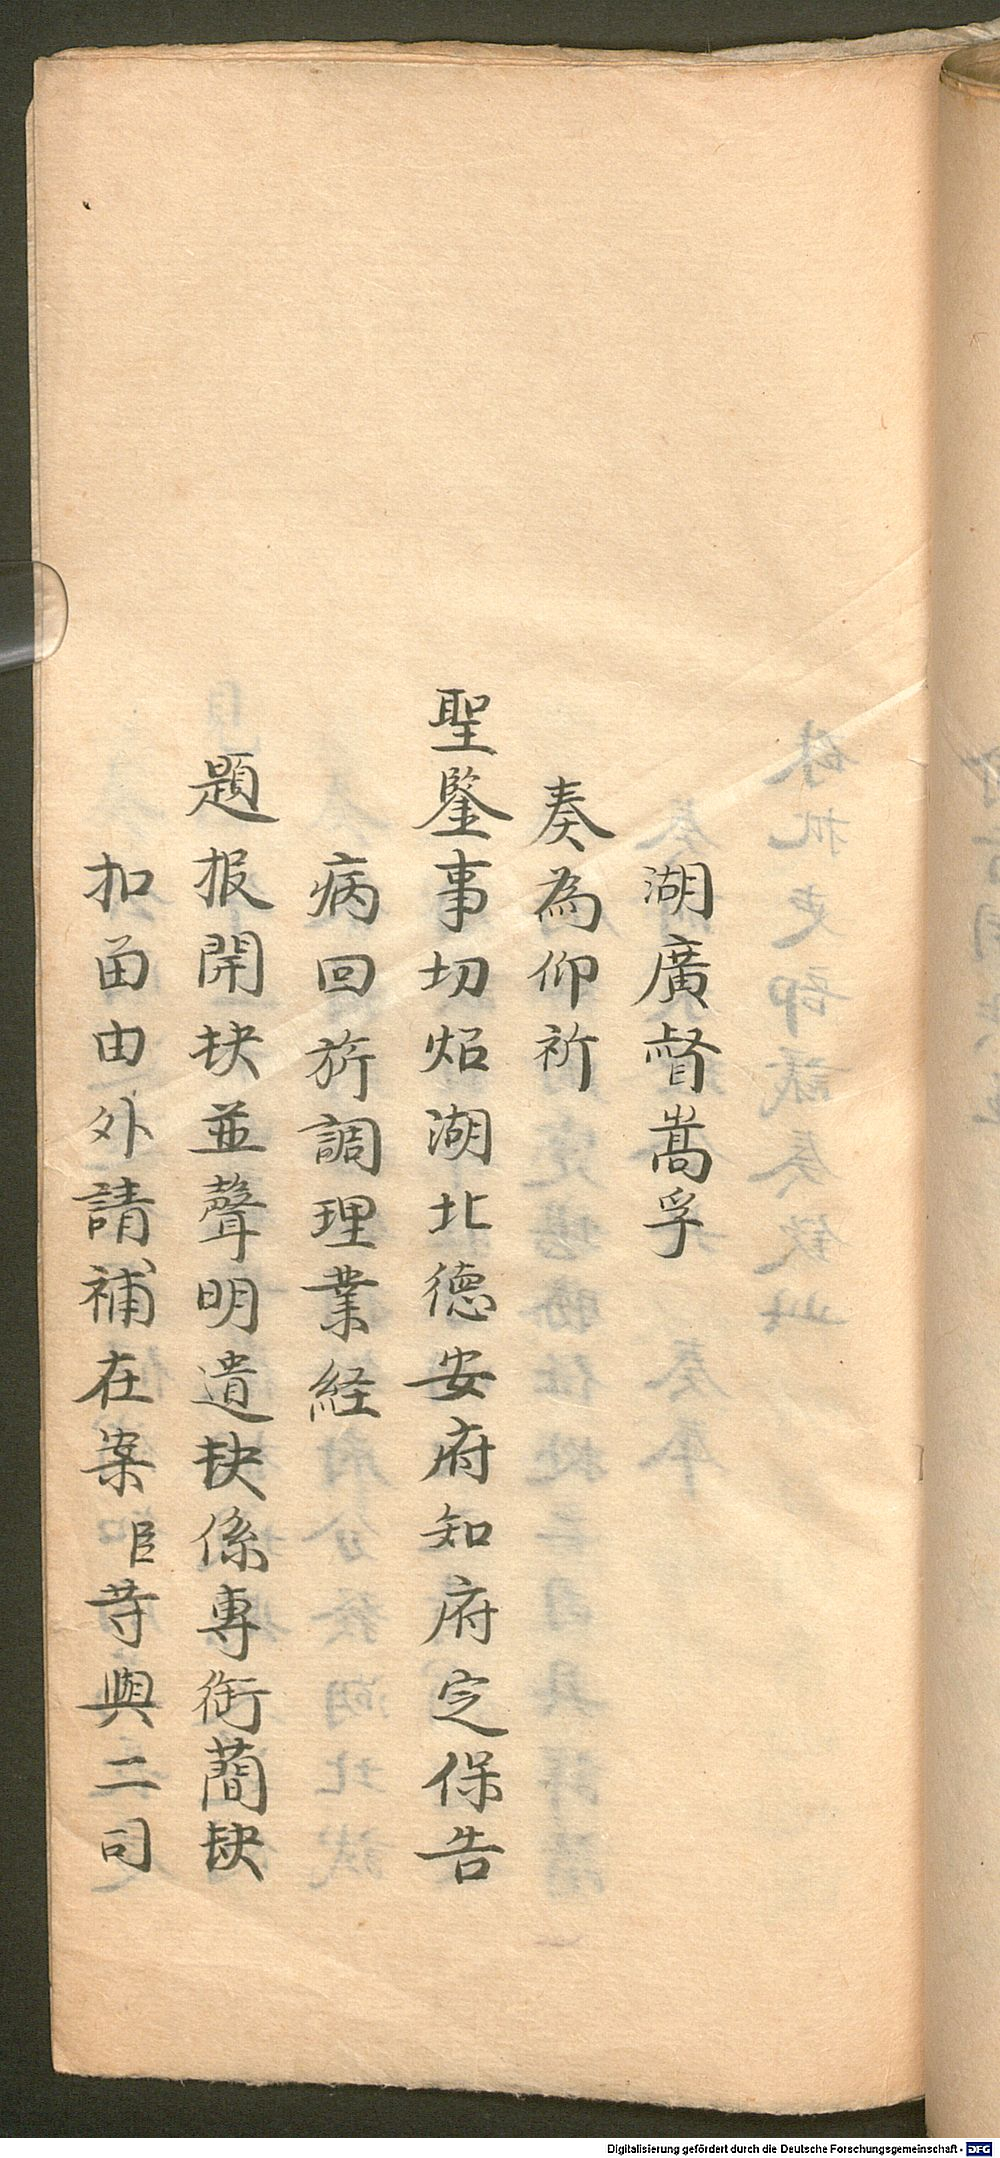 湖廣督嵩孚
奏為仰祈
聖鑒事切炤湖北德安府知府定保告
病回旂調理業経
題报開抉並聲明遺抉係專衙蕳抉
扣畱由外請補在案臣䓁與二司
Digitalisierung gefördert durch die Deutsche Forschungsgemeinschaft - DFG